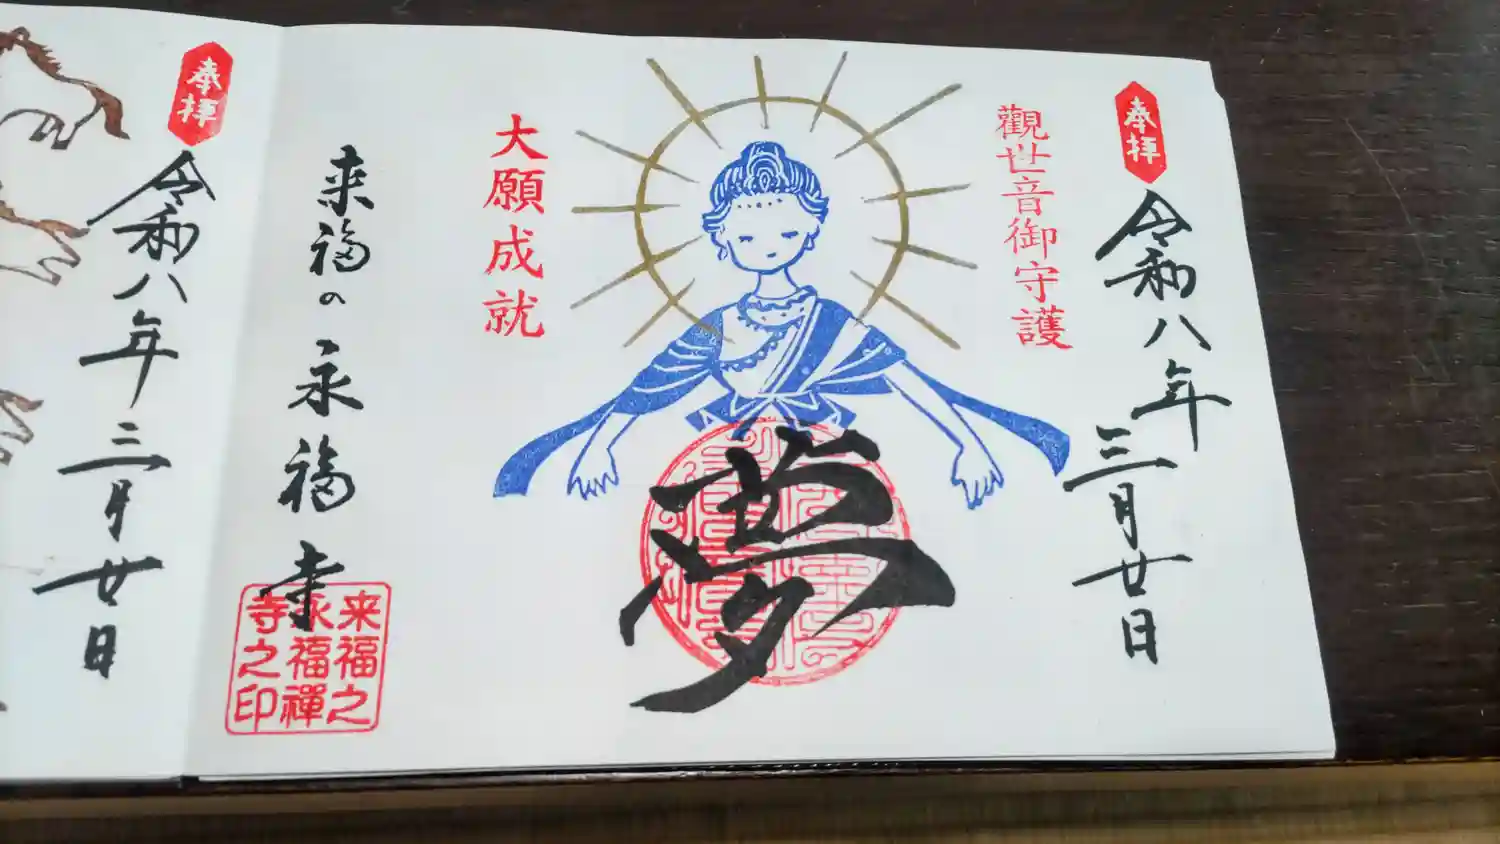 奉拝
令和八年三月廿日
觀世音御守護
夢
大願成就
来福の永福寺
来福之
永福禪
寺之印
奉拝
令和八年三月廿日